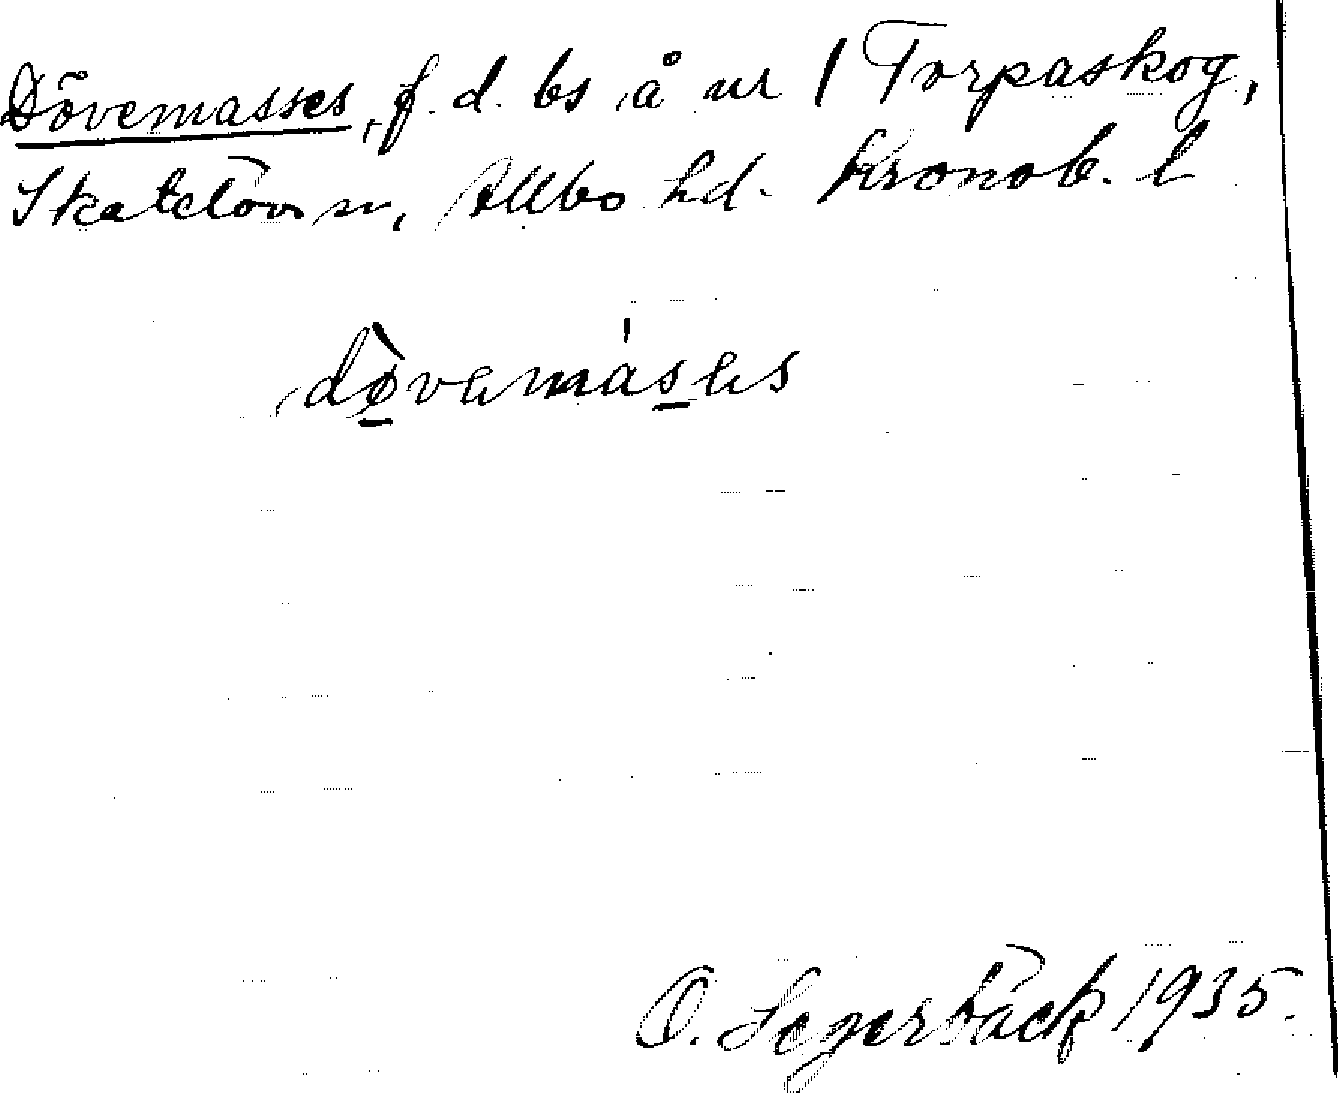 Dövemasses, f. d. bs å nr 1 Torpaskog,
Skatelövs sn, Allbo hd. Kronob. l
O. Segerbäck 1935.